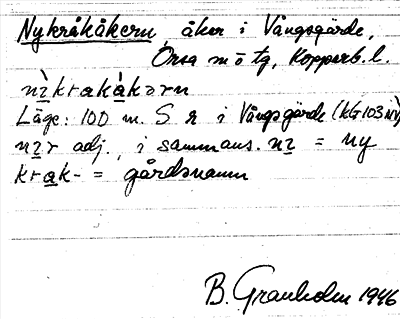 Nykråkåkern, åker i Vångsgärde,
Orsa sn o tg, Kopparb. l.
nìkrakàkarn
Läge: 100 m. S R i Vångsgärde (KG103NV)
nir adj., i sammans. ni = ny
krak- = gårdsnamn
B. Granholm 1946